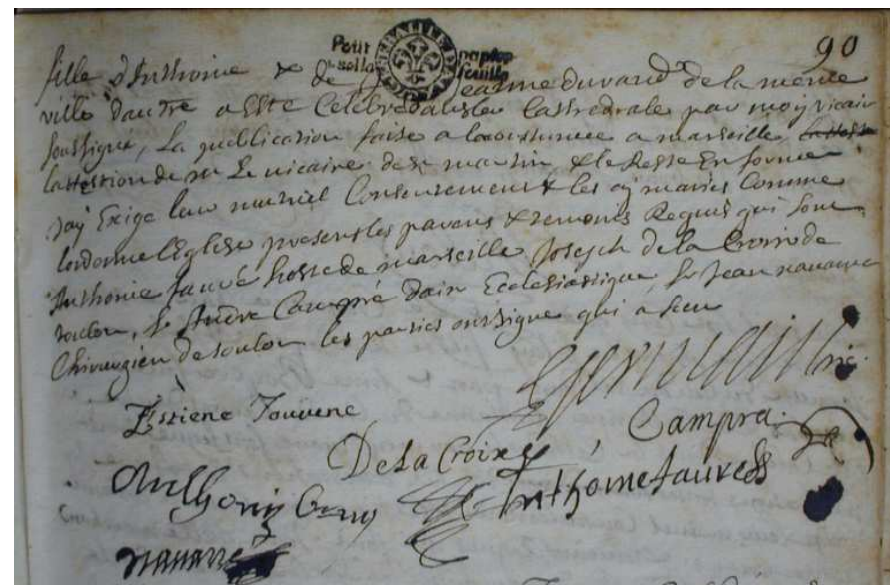 90
Petit papier
feuille
fille d'Anthoine & de Jeanne durand de la meme
ville dautre a Esté Celebré dans Cathedrale par moy vicaire
soussigné, La publication faite a marseille,
de mr Le vicaire de st martin, & le Reste En forme
Jay Exigé leur mutuel Consentement & les ay mariés Comme
lordonne lEglise presents les parans & temoins Requis qui sont
Anthoine fauré hoste de marseille Joseph de la Croix de
toulon, Sr André Campra daix Ecclesiastique, Sr Jean navarre
Chirurgien de toulon les parties ont signé qui a sceu
vic.
Estiene Jouvene
Campra
De la Croix
Anthoine faure
navarre